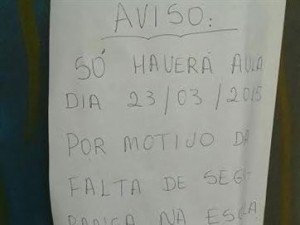 AVISO:
SÓ HAVERÁ AULA
DIA 23/03/2015
POR MOTIVO DA
FALTA DE SEGU-
RANÇA NA ESCOLA